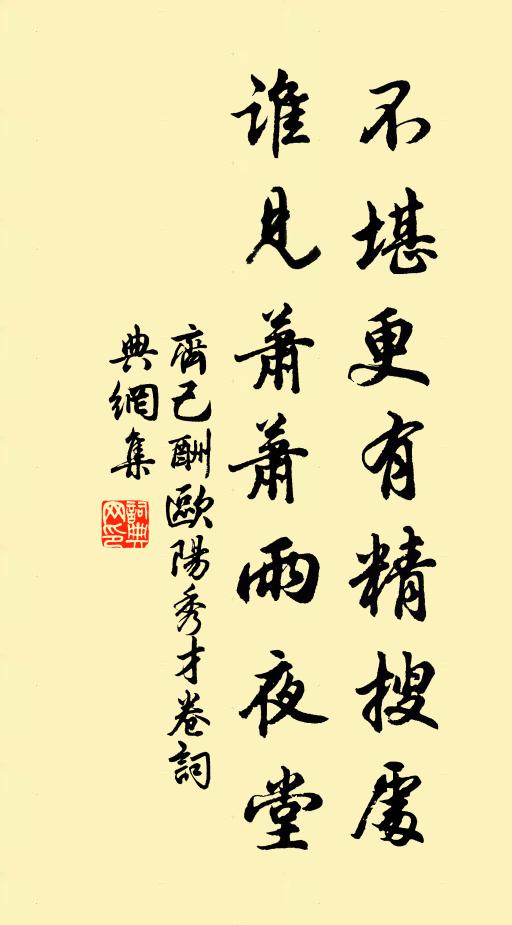 不堪更有精搜處
誰見蕭蕭雨夜堂
齊己酬歐陽秀才卷詞
典網集
詞典
网印